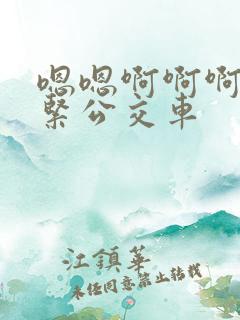 嗯嗯啊啊啊
紧公交车
江鎮華
未经同意禁止转载